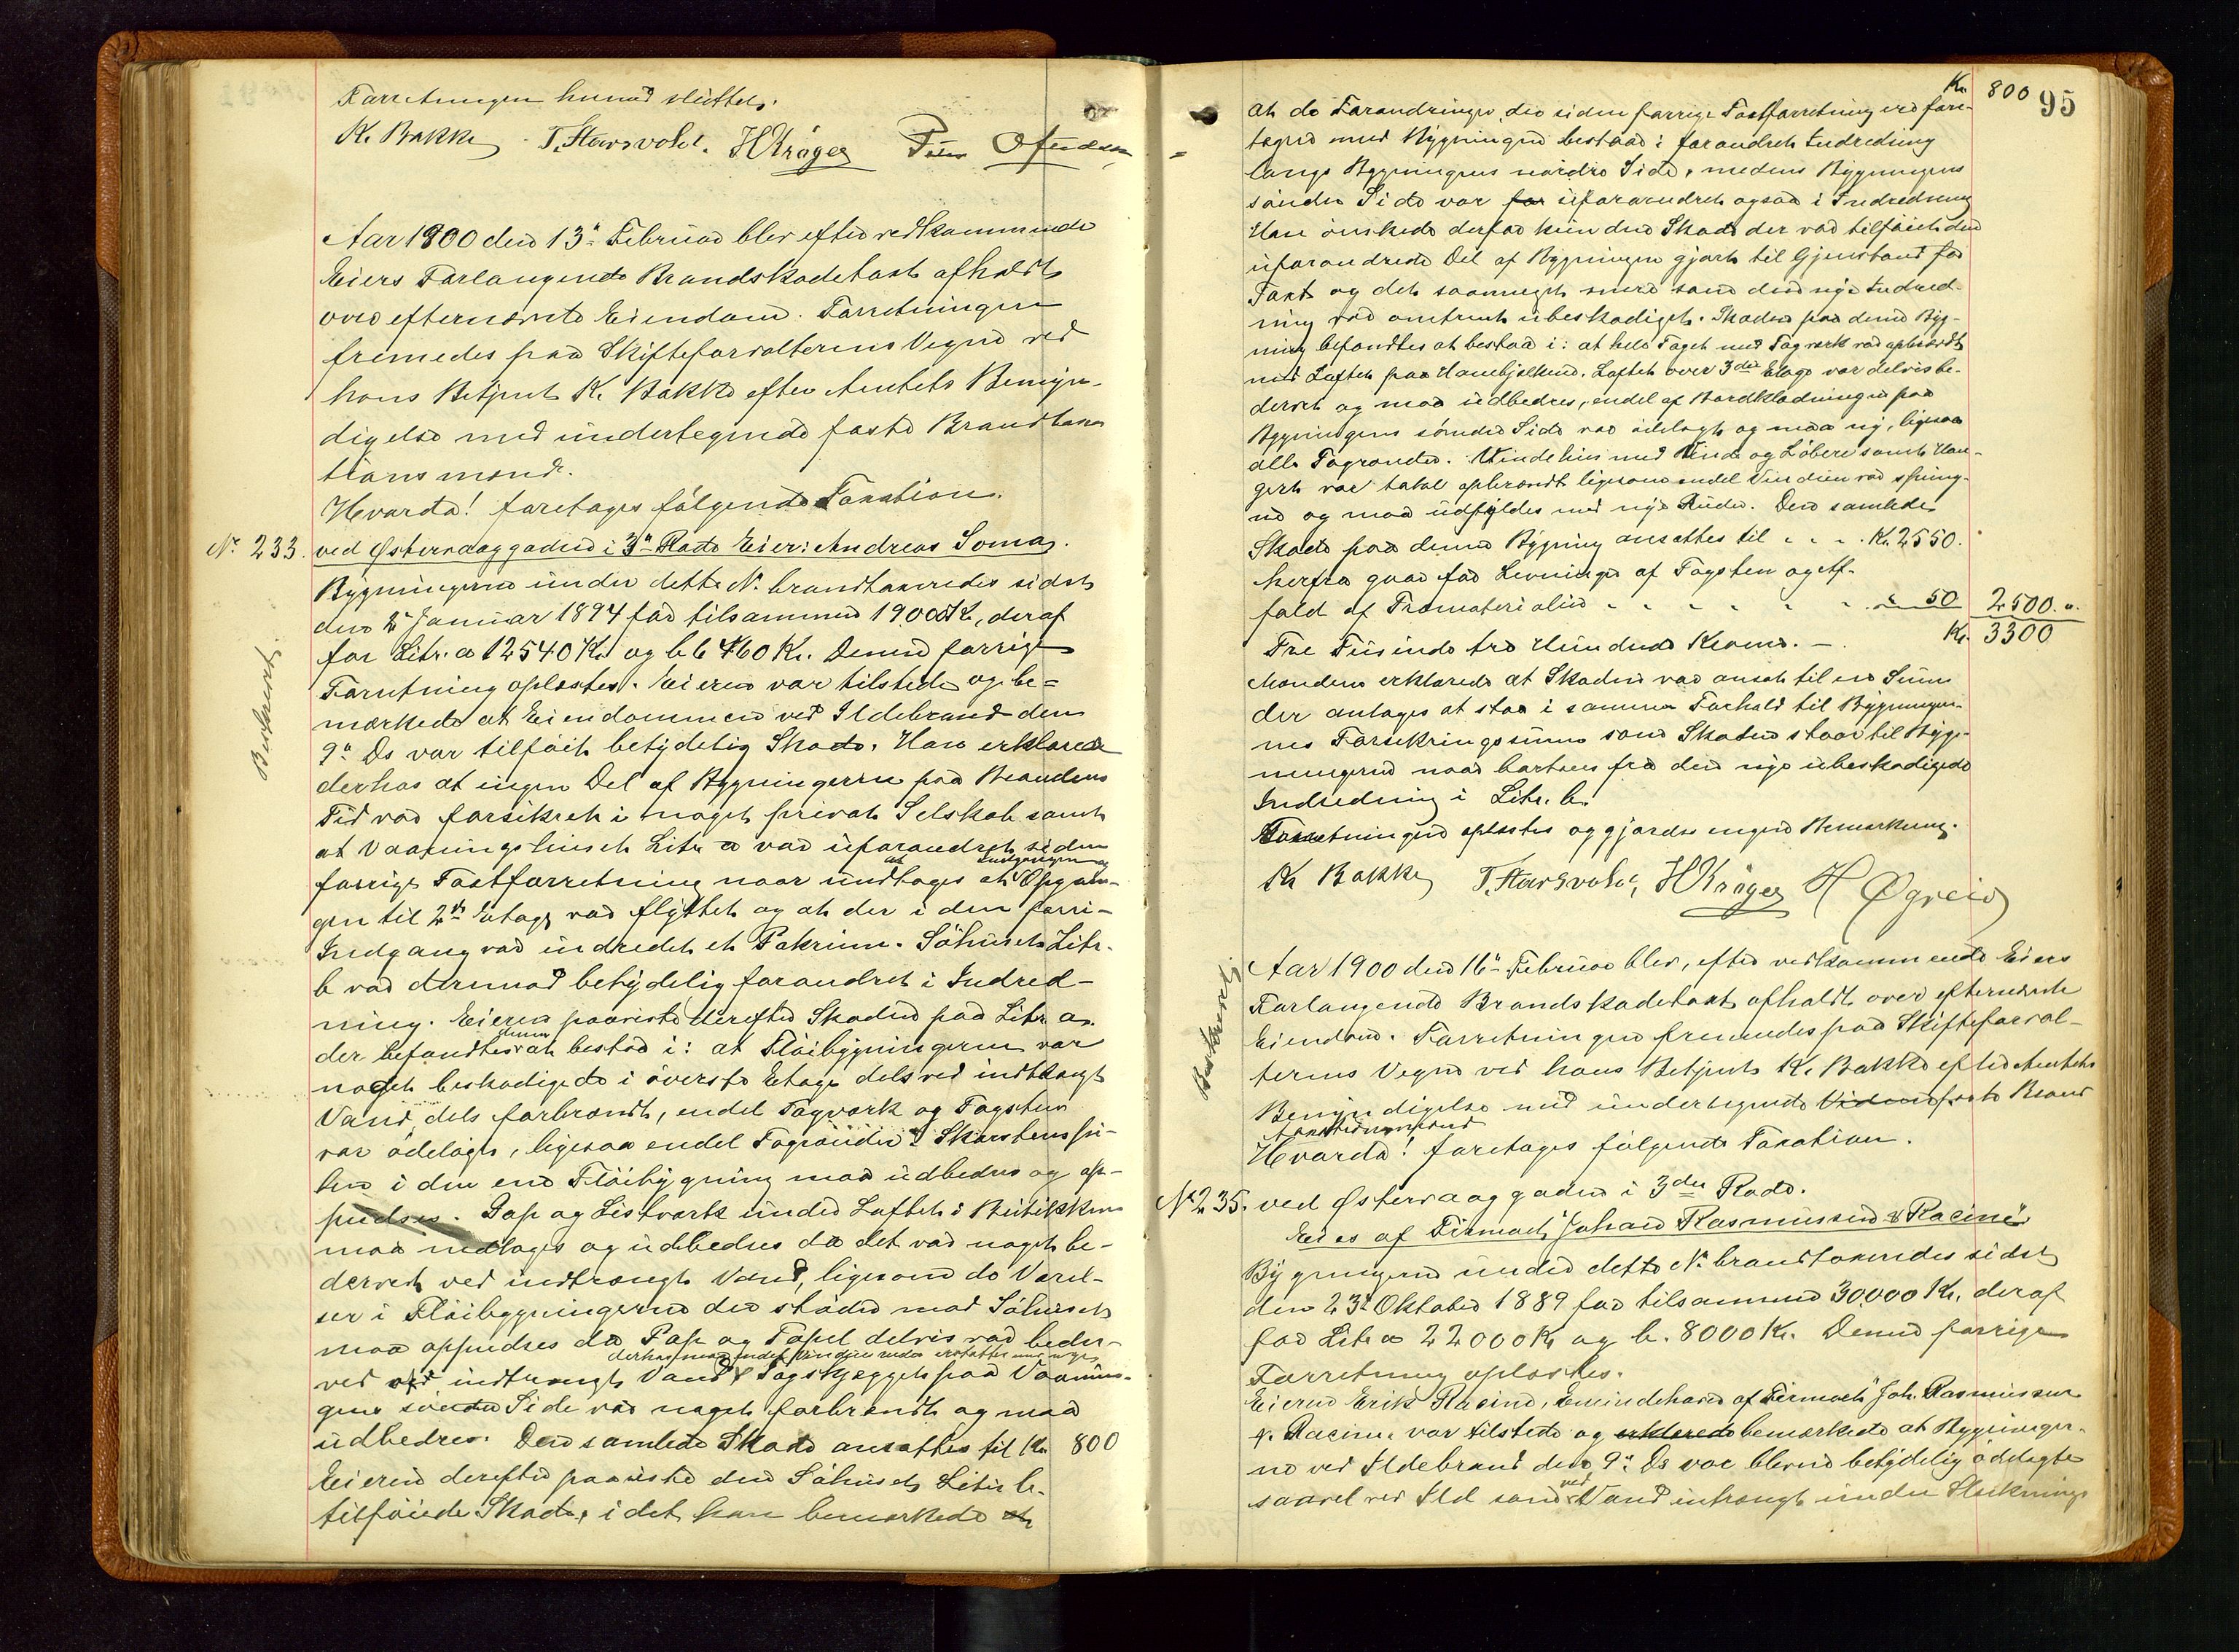 Forretningen hermed sluttet.
K. Bakke T. Horsvold. H Krøger
Aar 1900 den 13de Februar blev efter vedkommende
Eiers Forlangende Brandskadetaxt afholdt
over efternævnte Eiendom. Forretningen
fremmedes paa Skifteforvalterens Vegne ved
hans Betjent K. Bakke efter Amtets Bemyn-
digelse med undertegnede faste Brandtaxa-
tionsmænd.
Hvorda! foretages følgende Taxation.
No. 233. ved Østervaaggaden i 3die Rode Eier: Andreas Soma.
Bygningerne under dette No. brandtaxeredes sidst
den 2den Januar 1894 for tilsammen 19000 Kr, deraf
for Litr. a 12540 Kr. og b 6460 Kr. Denne forrige
Forretning oplæstes. Eieren var tilstede og be-
mærkede at Eiendommen ved Ildebrand den
9de Ds var tilføiet betydelig Skade. Han erklærede
derhos at ingen Del af Bygningerne paa Brandens
Tid var forsikret i noget privat Selskab samt
at Vaaningshuset Litr. a var uforandret siden
forrige Taxtforretning naar undtages at Indgangen og Opgan-
gen til 2den Etage var flyttet og at der i den forri-
Indgang var indredet et Pakrum. Söhuset Litr.
b var derimod betydelig forandret i Indred-
ning. Eieren paaviste derefter Skaden paa Litr. a.
der befandtes denne at bestod i: at Flöibygningerne var
noget beskadigede i överste Etage dels ved indtrængt
Vand, dels forbrændt, endel Tagværk og Tagsten
var ödelagt, ligesaa endel Tagrender. Skorstenspi-
ben i den ene Flöibygning maa udbedres og op-
pudses. Pap og Listværk under Loftet i Butikken
maa nedtages og udbedres da det var noget be-
dervet ved indtrængt Vand, ligesom de Værel-
ser i Flöibygningerne der stöder mod Söhuset
maa oppudses da Pap og Tapet delvis var beder-
derhos maa endel Vinduesruder erstattes med nye
vet ved indtrængt Vand. Tagskjegget paa Vaanin-
gens söndre Side var noget forbrændt og maa
udbedres. Den samlede Skade ansættes til Kr. 800
Eieren derefter paaviste den Söhuset Litr. b.
tilföiede Skade, i det han bemærkede at
Kr. 800 95
at de Forandringer der siden forrige Taxtforretning var fore-
tagne med Bygningen bestaar i forandret Indredning
langs Bygningens nordre Side, medens Bygningens
söndre Side var for uforandret ogsaa i Indredning
Han önskede derfor kun den Skade der var tilföiet den
uforandrede Del af Bygningen gjort til Gjenstand for
Taxt og det saameget mere som den nye Indred-
ning var omtrent ubeskadiget. Skaden paa denne Byg-
ning befandtes at bestaa i: at hele Taget med Tagværk var opbrændt
med Loftet paa Hanebjelkene. Loftet over 3die Etage var delvis be-
dervet og maa udbedres, endel af Bordklædningen paa
Bygningens söndre Side var ödelagt og maa ny, ligesaa
alle Tagrender. Vindehus med Vinde og Löbere samt Han-
gert var totalt opbrændt ligesom endel Vinduer var sprung-
ne og maa udfyldes med nye Ruder. Den samlede
Skade paa denne Bygning ansættes til . . . . Kr. 2550.
herfra gaar for Levninger af Tagsten og Af-
fald af Træmaterialier - - - - - - - " 50 2500. "
Kr. 3300
Tre Tusinde tre Hundrede Kroner. —
Mændene erklærede at Skaden var ansat til en Sum
der antages at staa i samme Forhold til Bygninger-
nes Forsikringssum som Skaden staar til Byg-
ningerne naar bortsees fra den nye ubeskadigede
Indredning i Litr. b.
Forretningen oplæstes og gjordes ingen Bemærkning.
K. Bakke T. Horsvold, H Krøger H Øgreid
Aar 1900 den 16de Februar blev, efter vedkommende Eiers
Forlangende Brandskadetaxt afholdt over efternævnte
Eiendom. Forretningen fremmedes paa Skifteforval-
terens Vegne ved hans Betjent K. Bakke efter Amtets
Bemyndigelse med undertegnede faste Brand
taxationsmænd
Hvorda! foretages fölgende Taxation.
No 235. ved Østervaaggaden i 3die Rode.
Eies af Firmaet "Johan Rasmussen & Racine"
Bygningerne under dette No. brandtaxeredes sidst
den 23de Oktober 1889 for tilsammen 30,000 Kr. deraf
for Litr a 22000 Kr og b. 8000 Kr. Denne forrige
Forretning oplæstes.
Eieren Erik Racine, Eneindehaver af Firmaet "Joh. Rasmussen
& Racine" var tilstede og erklærede bemærkede at Bygninger-
ne ved Ildebrand den 9de Ds var blevne betydelig ödelagte
saavel ved Ild som ved Vand intrængt under Sluknings